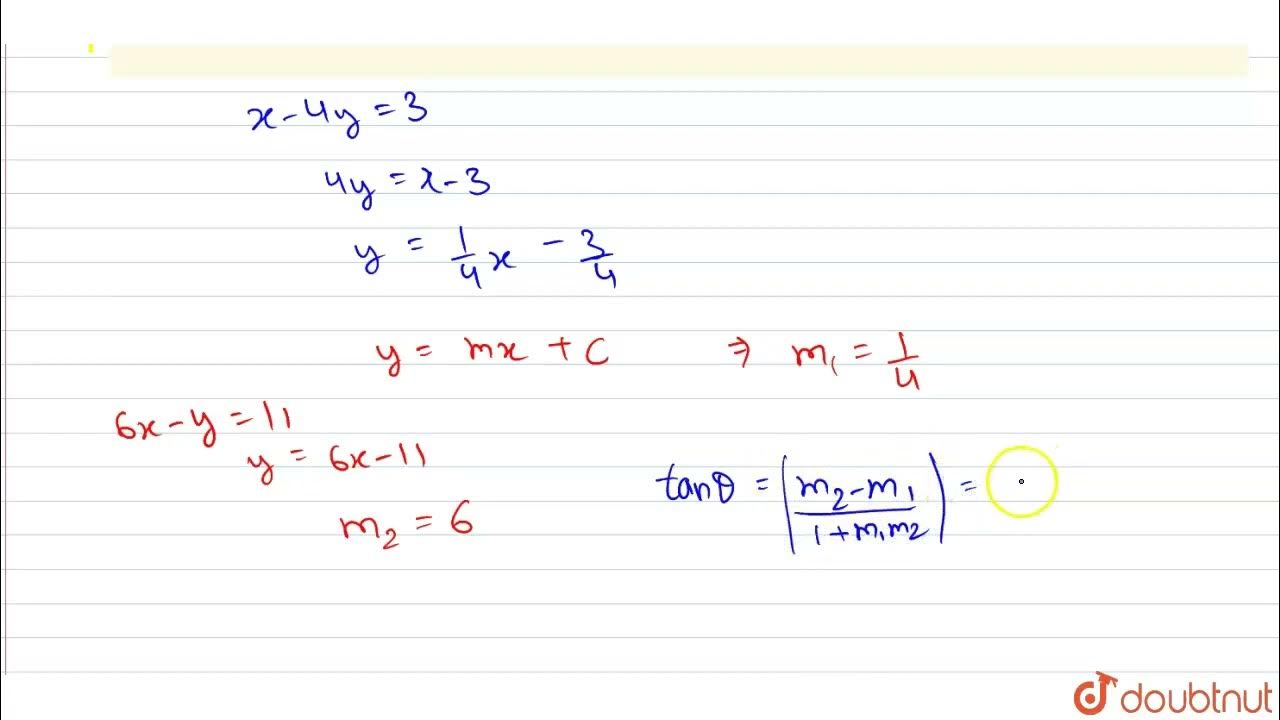 x - 4y = 3
4y = x - 3
y = 1/4 x - 3/4
y = mx + c ⇒ m₁ = 1/4
6x - y = 11
y = 6x - 11
m₂ = 6
tanθ = |(m₂ - m₁)/(1 + m₁m₂)| =
doubtnut